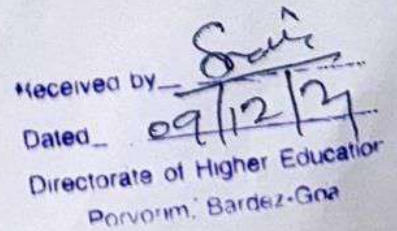 Received by
Dated 09/12/21
Directorate of Higher Education
Porvorim, Bardez-Goa